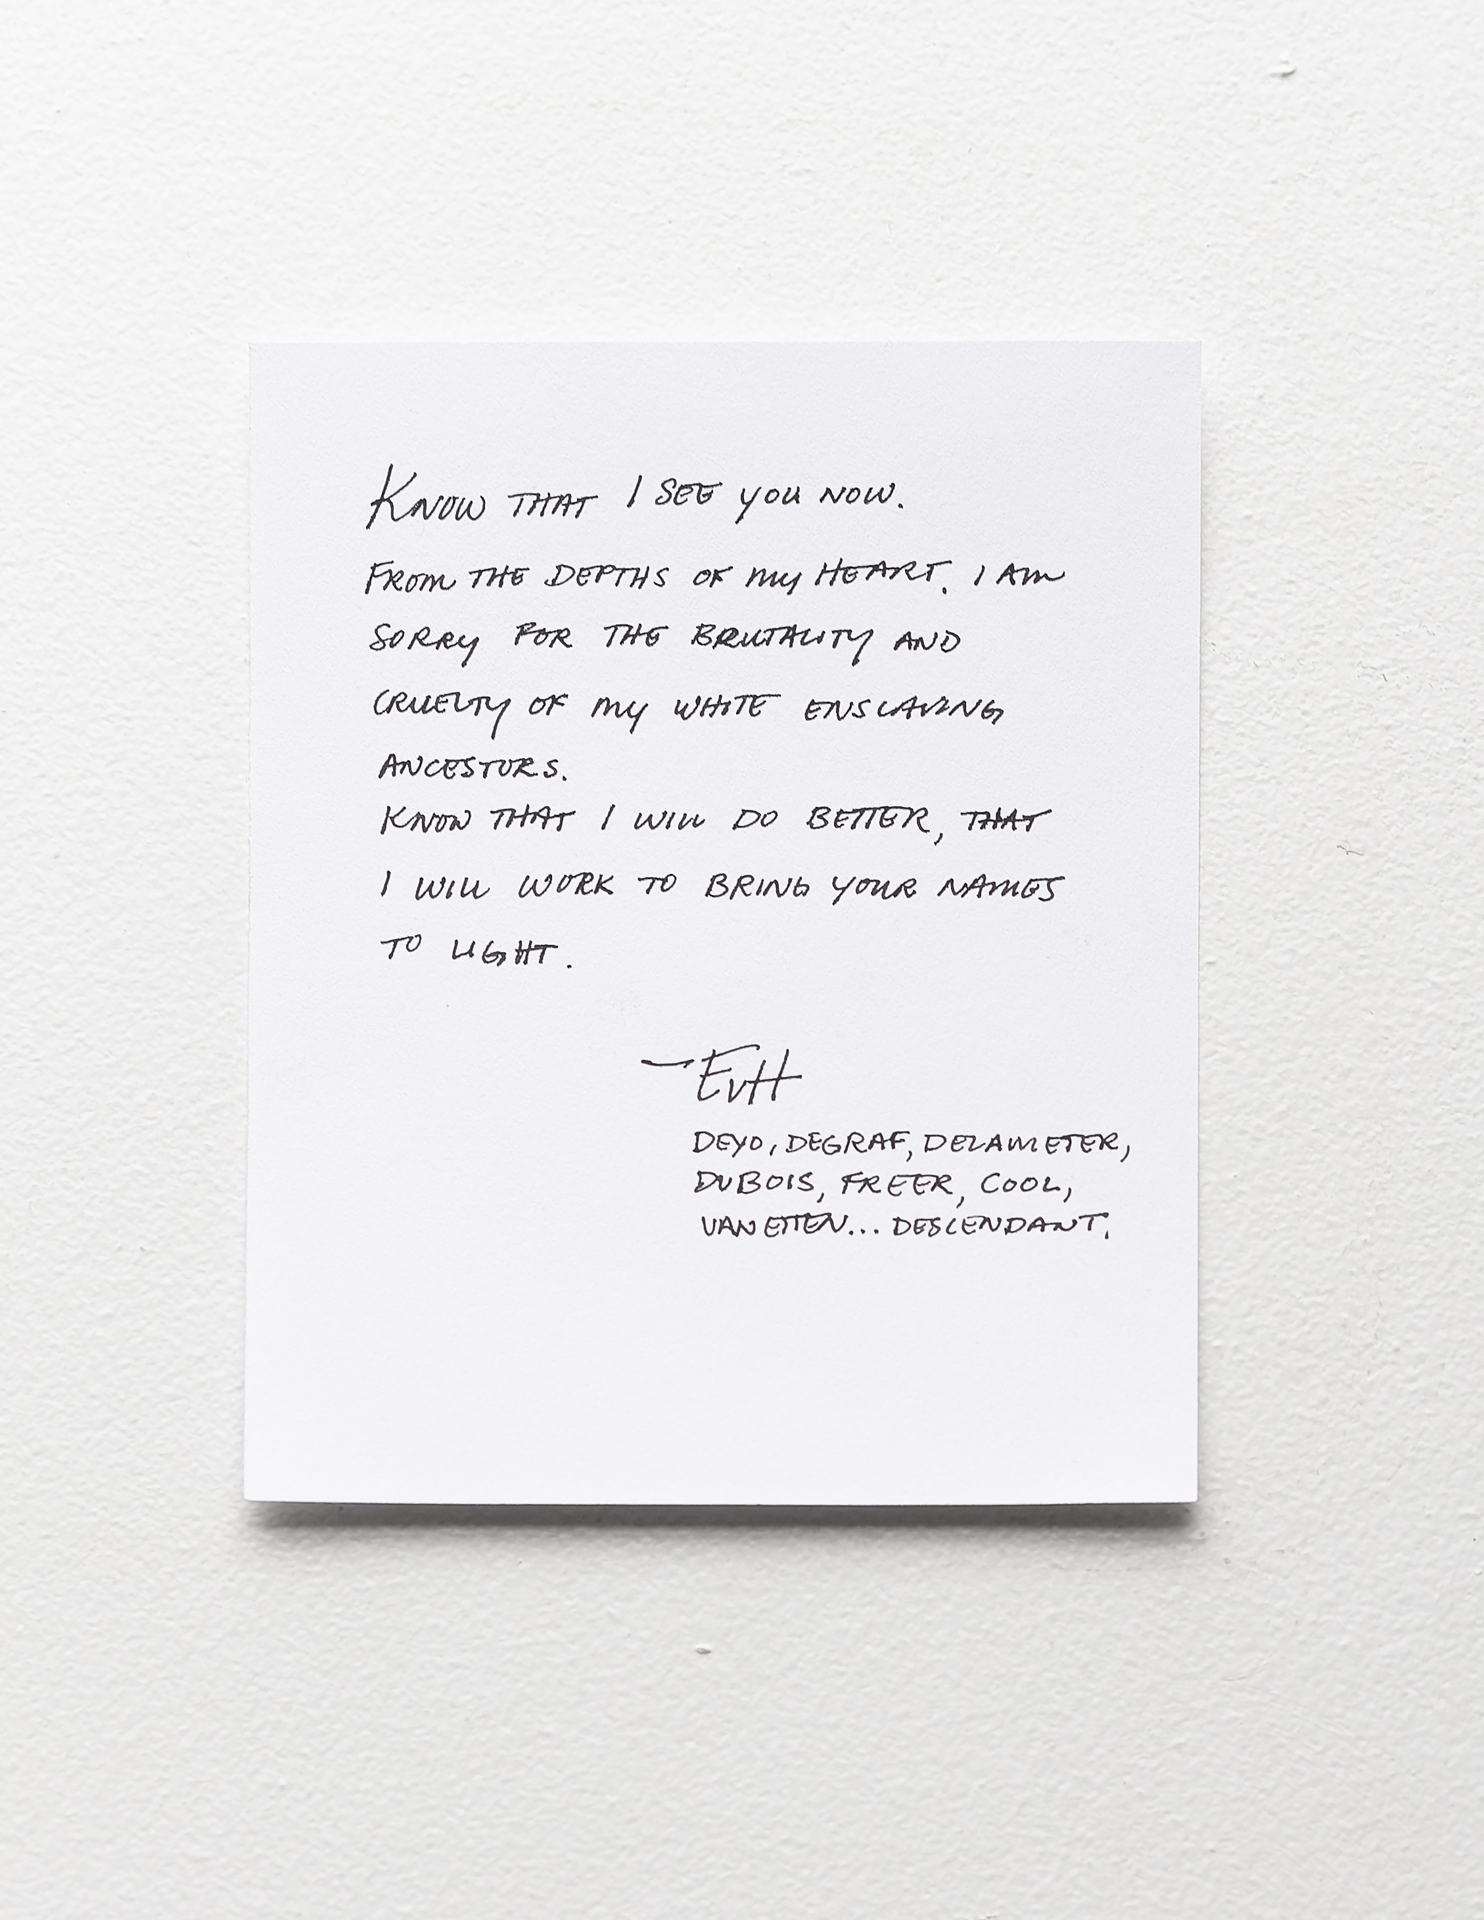 KNOW THAT I SEE YOU NOW.
FROM THE DEPTHS OF MY HEART. I AM
SORRY FOR THE BRUTALITY AND
CRUELTY OF MY WHITE ENSLAVING
ANCESTORS.
KNOW THAT I WILL DO BETTER, THAT
I WILL WORK TO BRING YOUR NAMES
TO LIGHT.
—EvH
DEYO, DEGRAF, DELAMETER,
DUBOIS, FREER, COOL,
VAN ETTEN... DESCENDANT.